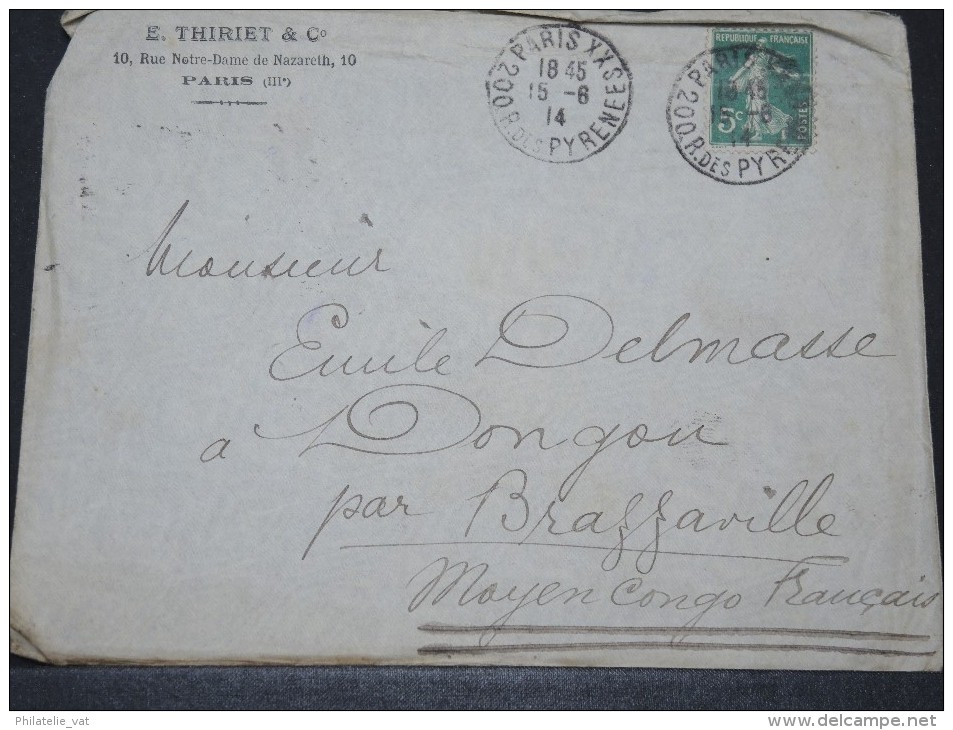 E. THIRIET & Cº
10, Rue Notre-Dame de Nazareth, 10
PARIS (IIIᵉ)
PARIS XX
18 45
15 -6
14
200 R. DES PYRENEES
REPUBLIQUE FRANÇAISE
5c
POSTES
PARIS
18 45
15 -6
14
200 R. DES PYRENE
Monsieur
Emile Delmasse
a Dongou
par Brazzaville
Moyen Congo Français
Philatelie_vat
www.delcampe.net